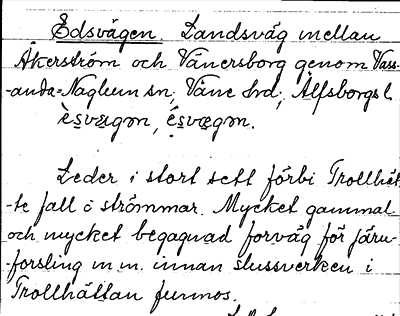 Edsvägen. Landsväg mellan
Åkerström och Vänersborg genom Vass-
-anda-Naglum sn, Väne hd, Älfsborgs l.
è̀svægən, é̀svægən.
Leder i stort sett förbi Trollhät-
-te fall o strömmar. Mycket gammal
och mycket begagnad forväg för järn-
-forsling m m. innan slussverken i
Trollhättan funnos.